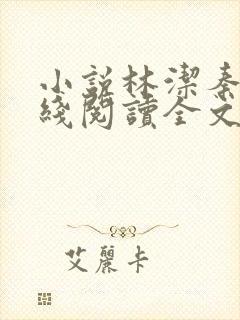 小說林潔秦
綫閱讀全文
艾麗卡